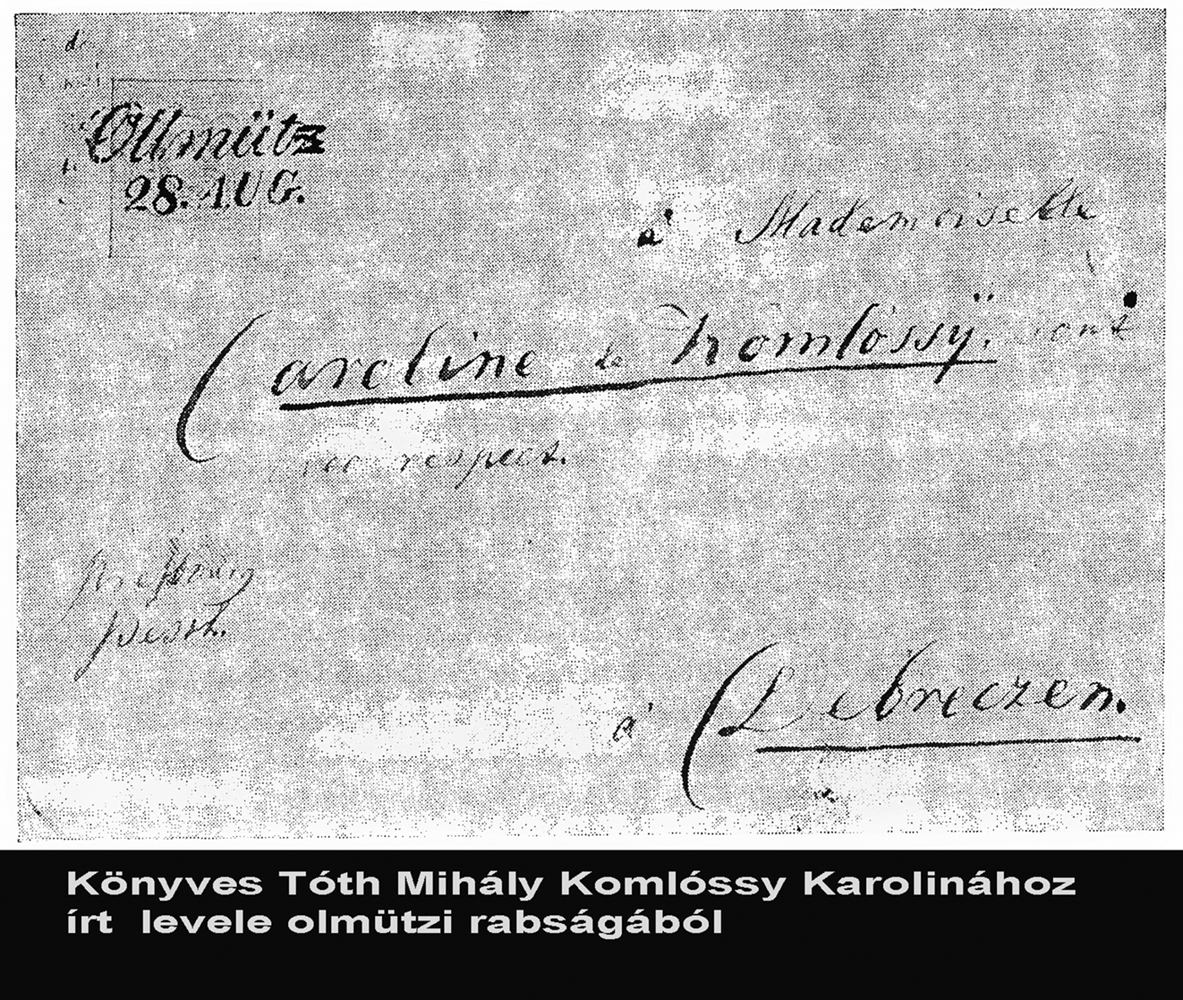 Ollmütz
28. AUG.
à Mademoiselle
Caroline de Komlóssÿ.
avec respect.
Presbourg
Pesth.
à Debreczen.
Könyves Tóth Mihály Komlóssy Karolinához
írt levele olmützi rabságából